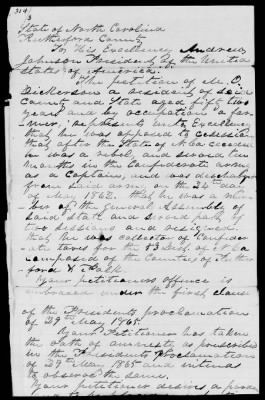 314
State of North Carolina
Rutherford County
To His Excellency Andrew
Johnson President of the United
States of America.
The petition of M. O.
Dickerson a resident of said
County and State aged fifty two
years and by occupation a far-
mer: represents unto Excellency
that he was opposed to secession
that after the State of N.Ca seceded
he was a rebel and served
months in the Confederate army
as a Captain, and was discharged
from said army on the 24 day
of May 1862. that he was a mem-
ber of the general assembly of
said state and served part of
two sessions and resigned.
that he was collector of Confeder-
ate taxes for the Dist of N.Ca.
composed of the Counties of Ruther-
ford & Polk.
Your petitioners offence is
embraced under the first clause
of the Presidents proclamation
of 29th May 1865.
Your Petitioner has taken
the oath of amnesty as prescribed
in the Presidents Proclamation
of 29th May 1865 and intends
to observe the same.
Your petitioner desires a pardon